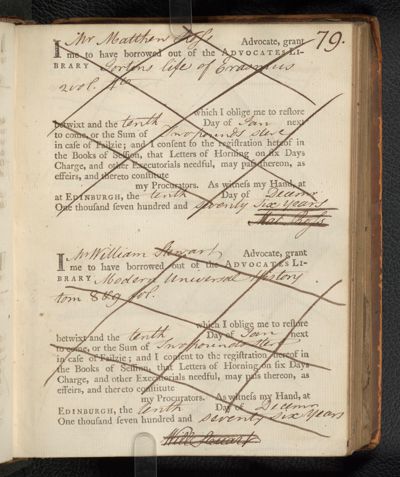 79.
I Mr Matthew Ross Advocate, grant
me to have borrowed out of the ADVOCATES LI-
BRARY Jortins life of Erasmus
2 vol. 4to
which I oblige me to reſtore
betwixt and the tenth Day of Jan next
to come, or the Sum of Two pounds sterl
in caſe of Failzie; and I conſent to the regiſtration hereof in
the Books of Seſſion, that Letters of Horning on ſix Days
Charge, and other Executorials needful, may paſs thereon, as
effeirs, and thereto conſtitute
my Procurators. As witneſs my Hand, at
at EDINBURGH, the tenth Day of Decemr
One thouſand ſeven hundred and seventy Six years
Mat. Ross
I Mr William Stewart Advocate, grant
me to have borrowed out of the ADVOCATES LI-
BRARY Modern Universal History
tom 8 & 9 fol.
which I oblige me to reſtore
betwixt and the tenth Day of Jan next
to come, or the Sum of Two pounds sterl
in caſe of Failzie; and I conſent to the regiſtration hereof in
the Books of Seſſion, that Letters of Horning on ſix Days
Charge, and other Executorials needful, may paſs thereon, as
effeirs, and thereto conſtitute
my Procurators. As witneſs my Hand, at
EDINBURGH, the tenth Day of Decemr
One thouſand ſeven hundred and seventy Six Years
Will: Stewart